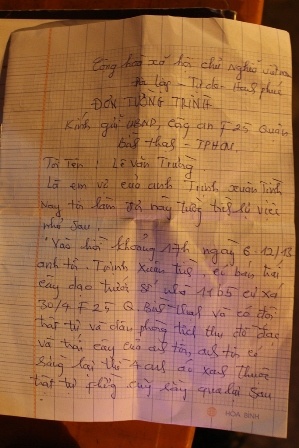 Cộng hoà xã hội chủ nghĩa việt nam
Độc lập - Tự do - Hạnh phúc
ĐƠN TƯỜNG TRÌNH
Kính gửi UBND, Công an F25 Quận
Bình Thạnh - TPHCM.
Tôi Tên : Lê Văn Trường
Là em vợ của anh Trịnh Xuân Tình
nay tôi làm đơn này tường trình sự việc
như sau :
Vào hồi khoảng 17h ngày 6.12/13
anh tôi - Trịnh Xuân Tình có bán trái
cây dạo trước số nhà 1165
30/4 F25 Q. Bình Thạnh và có đội
trật tự và dân phòng tịch thu đồ đạc
và trái cây của anh tôi, anh tôi có
sang lại thì 4 anh áo xanh thuộc
trật tự qua lại sau
HOA BINH